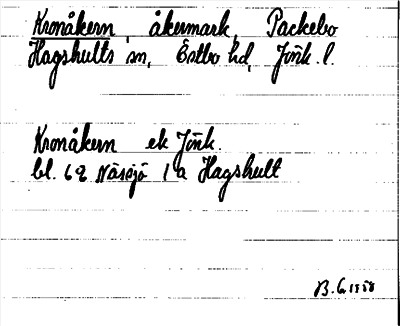 Kronåkern, åkermark, Packebo
Hagshults sn, Östbo hd, Jönk. l.
Kronåkern ek Jönk.
bl. 62 Nässjö 1a Hagshult
B. G. 1958